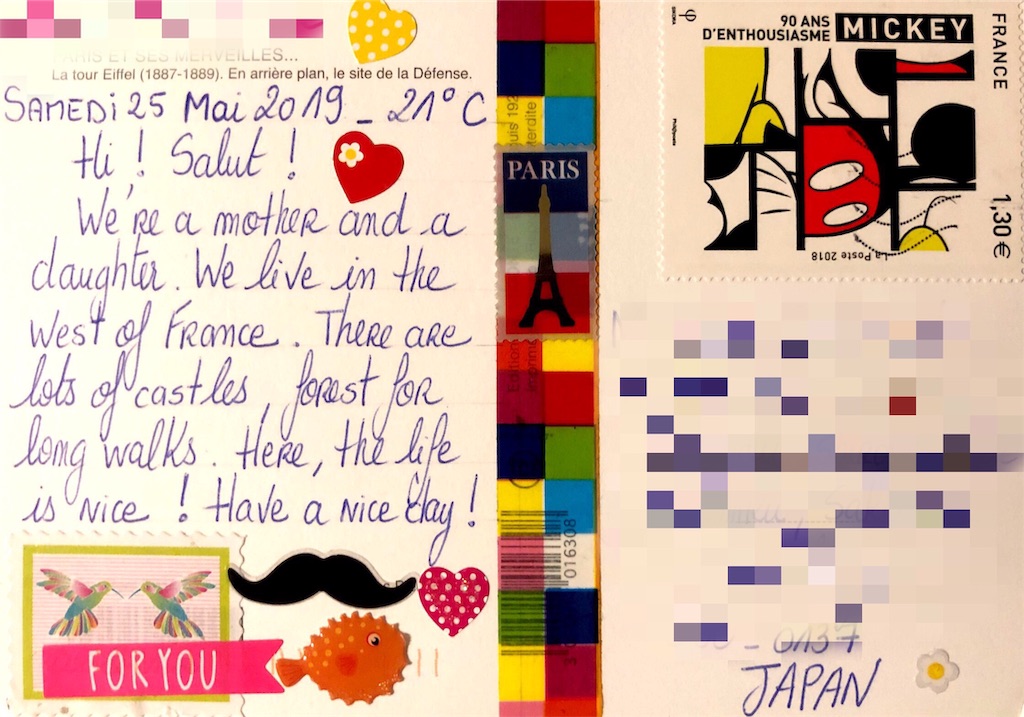 PARIS ET SES MERVEILLES...
La tour Eiffel (1887-1889). En arrière plan, le site de la Défense.
SAMEDI 25 Mai 2019 _ 21° C
Hi ! Salut !
We're a mother and a
daughter. We live in the
West of France. There are
lots of castles, forest for
long walks. Here, the life
is nice ! Have a nice day !
FOR YOU
PARIS
016308
90 ANS
D'ENTHOUSIASME
MICKEY
FRANCE
1,30 €
La Poste 2018
0137
JAPAN